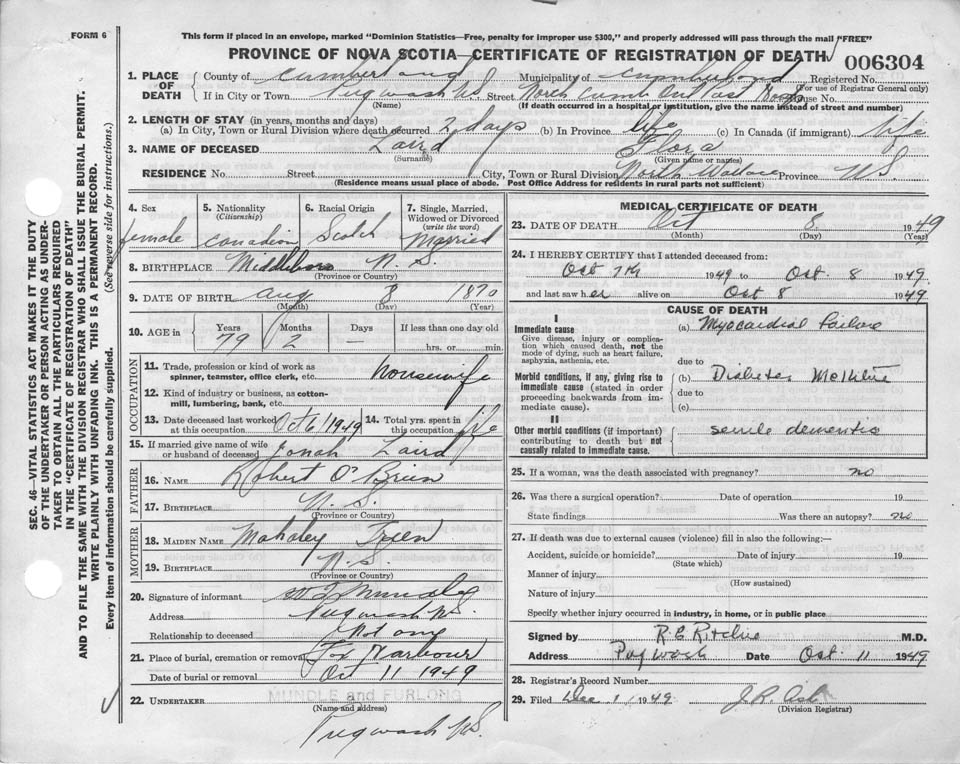 FORM 6
This form if placed in an envelope, marked "Dominion Statistics—Free, penalty for improper use $300," and properly addressed will pass through the mail "FREE"
PROVINCE OF NOVA SCOTIA—CERTIFICATE OF REGISTRATION OF DEATH
006304
1. PLACE OF DEATH
County of Cumberland Municipality of Cumberland Registered No.
(For use of Registrar General only)
If in City or Town Pugwash N.S. Street North Cumb House No.
(Name) (If death occurred in a hospital or institution, give the name instead of street and number)
2. LENGTH OF STAY (in years, months and days)
(a) In City, Town or Rural Division where death occurred 2 days (b) In Province life (c) In Canada (if immigrant) life
3. NAME OF DECEASED Laird Flora
(Surname) (Given name or names)
RESIDENCE No. Street City, Town or Rural Division North Wallace Province N.S.
(Residence means usual place of abode. Post Office Address for residents in rural parts not sufficient)
4. Sex female
5. Nationality (Citizenship) Canadian
6. Racial Origin Scotch
7. Single, Married, Widowed or Divorced (write the word) Married
8. BIRTHPLACE Middleboro N.S.
(Province or Country)
9. DATE OF BIRTH Aug 8 1870
(Month) (Day) (Year)
10. AGE in Years Months Days If less than one day old
79 2 – hrs. or min.
OCCUPATION
11. Trade, profession or kind of work as spinner, teamster, office clerk, etc. housewife
12. Kind of industry or business, as cotton-mill, lumbering, bank, etc.
13. Date deceased last worked at this occupation Oct 6/1949
14. Total yrs. spent in this occupation life
15. If married give name of wife or husband of deceased Jonah Laird
FATHER
16. NAME Robert O'Brien
17. BIRTHPLACE N.S.
(Province or Country)
MOTHER
18. MAIDEN NAME Mahaley
19. BIRTHPLACE N.S.
(Province or Country)
20. Signature of informant
Address Pugwash N.S.
Relationship to deceased Not any
21. Place of burial, cremation or removal Fox Harbour
Date of burial or removal Oct 11 1949
22. UNDERTAKER MUNDLE and FURLONG
(Name and address)
Pugwash N.S.
MEDICAL CERTIFICATE OF DEATH
23. DATE OF DEATH Oct 8 1949
(Month) (Day) (Year)
24. I HEREBY CERTIFY that I attended deceased from:
Oct 7th 1949 to Oct 8 1949
and last saw her alive on Oct 8 1949
CAUSE OF DEATH
I
Immediate cause (a) Myocardial Failure
Give disease, injury or complication which caused death, not the mode of dying, such as heart failure, asphyxia, asthenia, etc.
due to
Morbid conditions, if any, giving rise to immediate cause (stated in order proceeding backwards from immediate cause).
(b) Diabetes Mellitus
due to
(c)
II
Other morbid conditions (if important) contributing to death but not causally related to immediate cause.
senile dementia
25. If a woman, was the death associated with pregnancy? no
26. Was there a surgical operation? Date of operation 19
State findings Was there an autopsy? no
27. If death was due to external causes (violence) fill in also the following:—
Accident, suicide or homicide? Date of injury 19
(State which)
Manner of injury
(How sustained)
Nature of injury
Specify whether injury occurred in industry, in home, or in public place
Signed by R.E. Ritchie M.D.
Address Pugwash Date Oct 11 1949
28. Registrar's Record Number
29. Filed Dec 1/ 1949
(Division Registrar)
SEC. 46—VITAL STATISTICS ACT MAKES IT THE DUTY
OF THE UNDERTAKER OR PERSON ACTING AS UNDER-
TAKER TO OBTAIN ALL THE PARTICULARS REQUIRED
IN THE "CERTIFICATE OF REGISTRATION OF DEATH"
AND TO FILE THE SAME WITH THE DIVISION REGISTRAR WHO SHALL ISSUE THE BURIAL PERMIT.
WRITE PLAINLY WITH UNFADING INK. THIS IS A PERMANENT RECORD.
Every item of information should be carefully supplied. (See reverse side for instructions.)